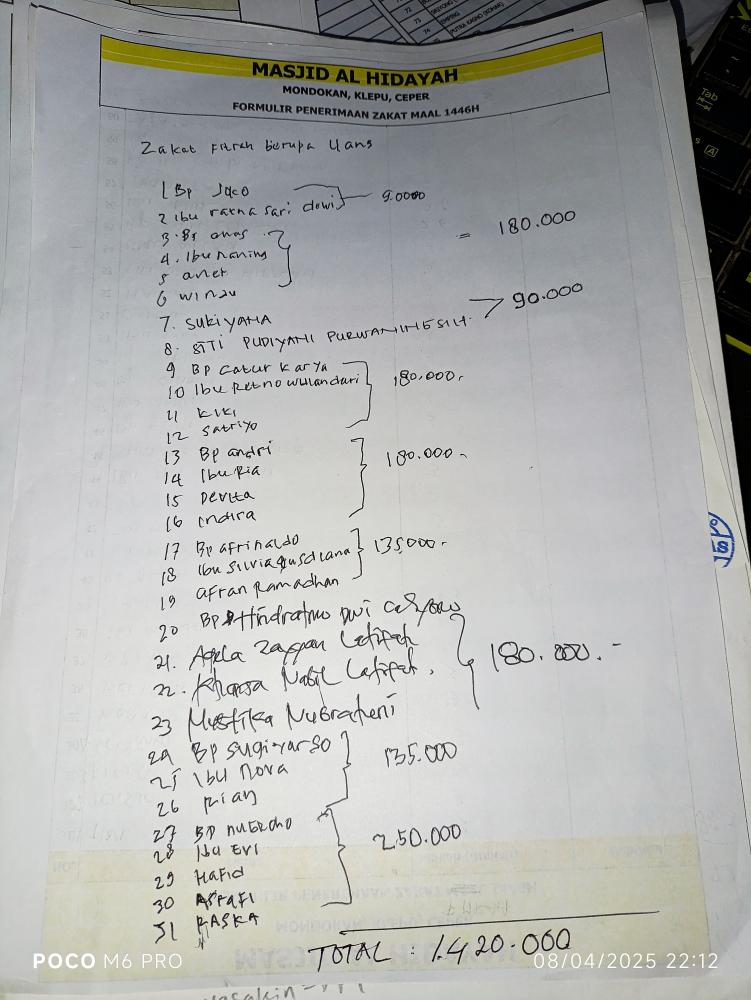 MASJID AL HIDAYAH
MONDOKAN, KLEPU, CEPER
FORMULIR PENERIMAAN ZAKAT MAAL 1446H
Zakat Fitrah berupa Uang
1 Bp Joco
2 Ibu ratna sari dewi 9.0000
3. Bp anas
4. Ibu naning = 180.000
5 anet
6 winau
7. SUKIYANA
8. SITI PUDIYANI PURWANINGSIH 90.000
9 Bp catur karya
10 Ibu Retno wulandari 180.000,
11 kiki
12 satriyo
13 Bp andri
14 Ibu Ria 180.000
15 Devita
16 Indira
17 Bp afrinaldo
18 Ibu silvia gusdiana 135.000
19 afran Ramadhan
20 Bp Hindratmo Dwi cahyono
21. Aqela Zayyan Latifah
22. Khansa Nabil Latifah. 180.000.-
23 Mustika Nugraheni
24 Bp sugiyarso
25 Ibu nova 135.000
26 Rian
27 BP nuERcho
28 Ibu EVI 250.000
29 Hafid
30 ASRAFI
31 RASKA
TOTAL : 1.420.000
POCO M6 PRO
08/04/2025 22:12
Tab